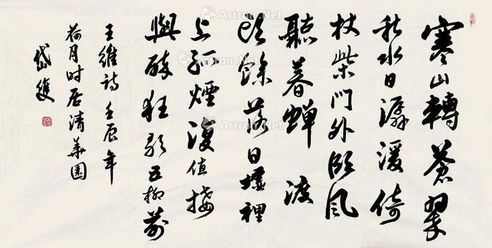 寒山轉蒼翠
秋水日潺湲倚
杖柴門外臨風
聽暮蟬渡
頭餘落日墟裡
上孤煙復值接
輿醉狂歌五柳前
王維詩壬辰年
荷月時居清華園